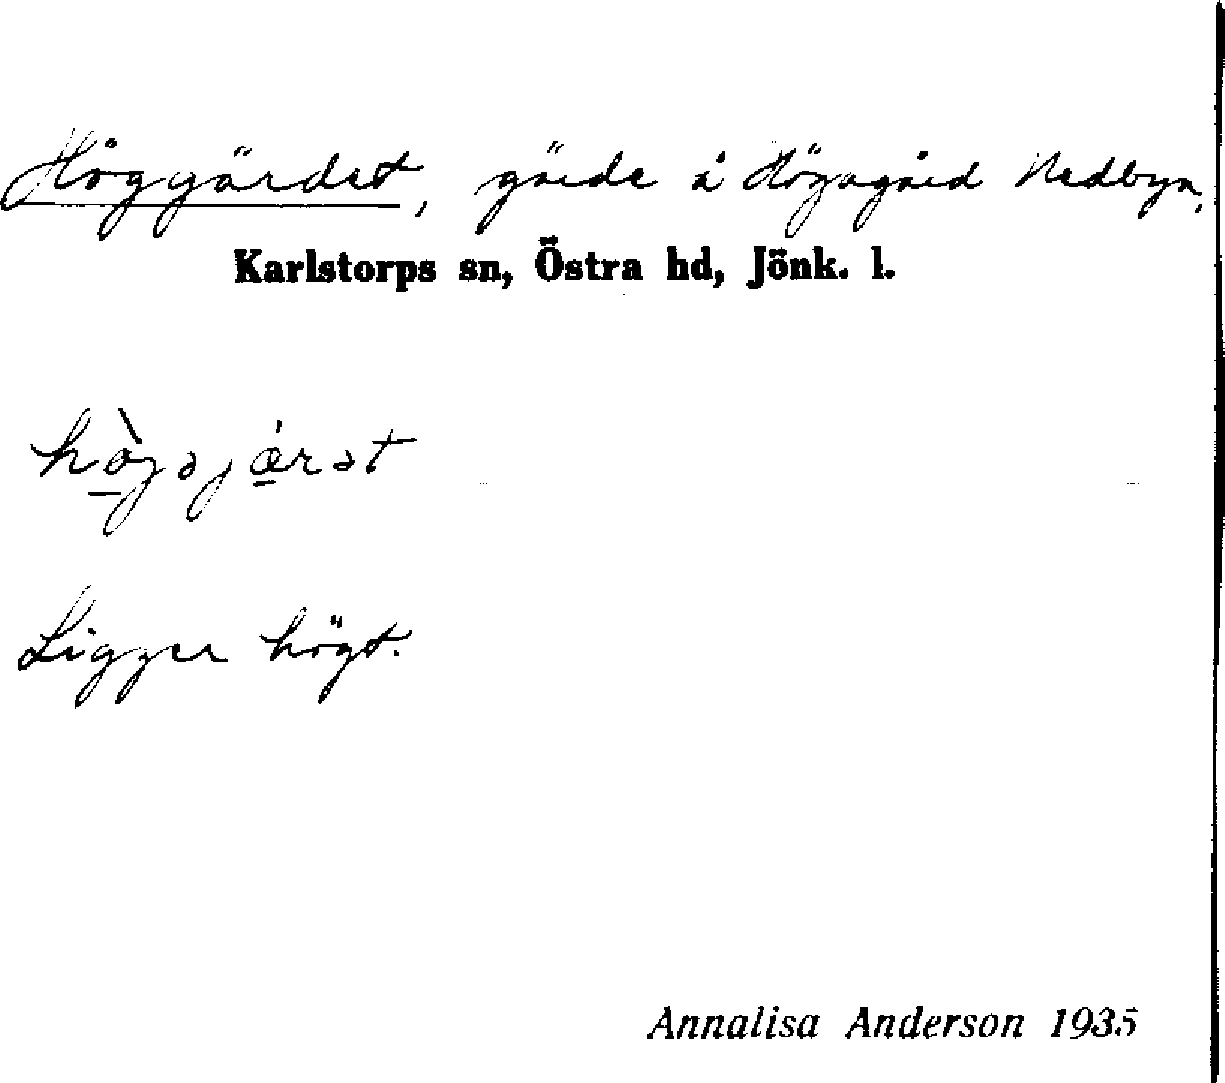 Höggärdet, gärde å Högagärd Nedbyn,
Karlstorps sn, Östra hd, Jönk. l.
hògəjǽrət
Ligger högt.
Annalisa Anderson 1935